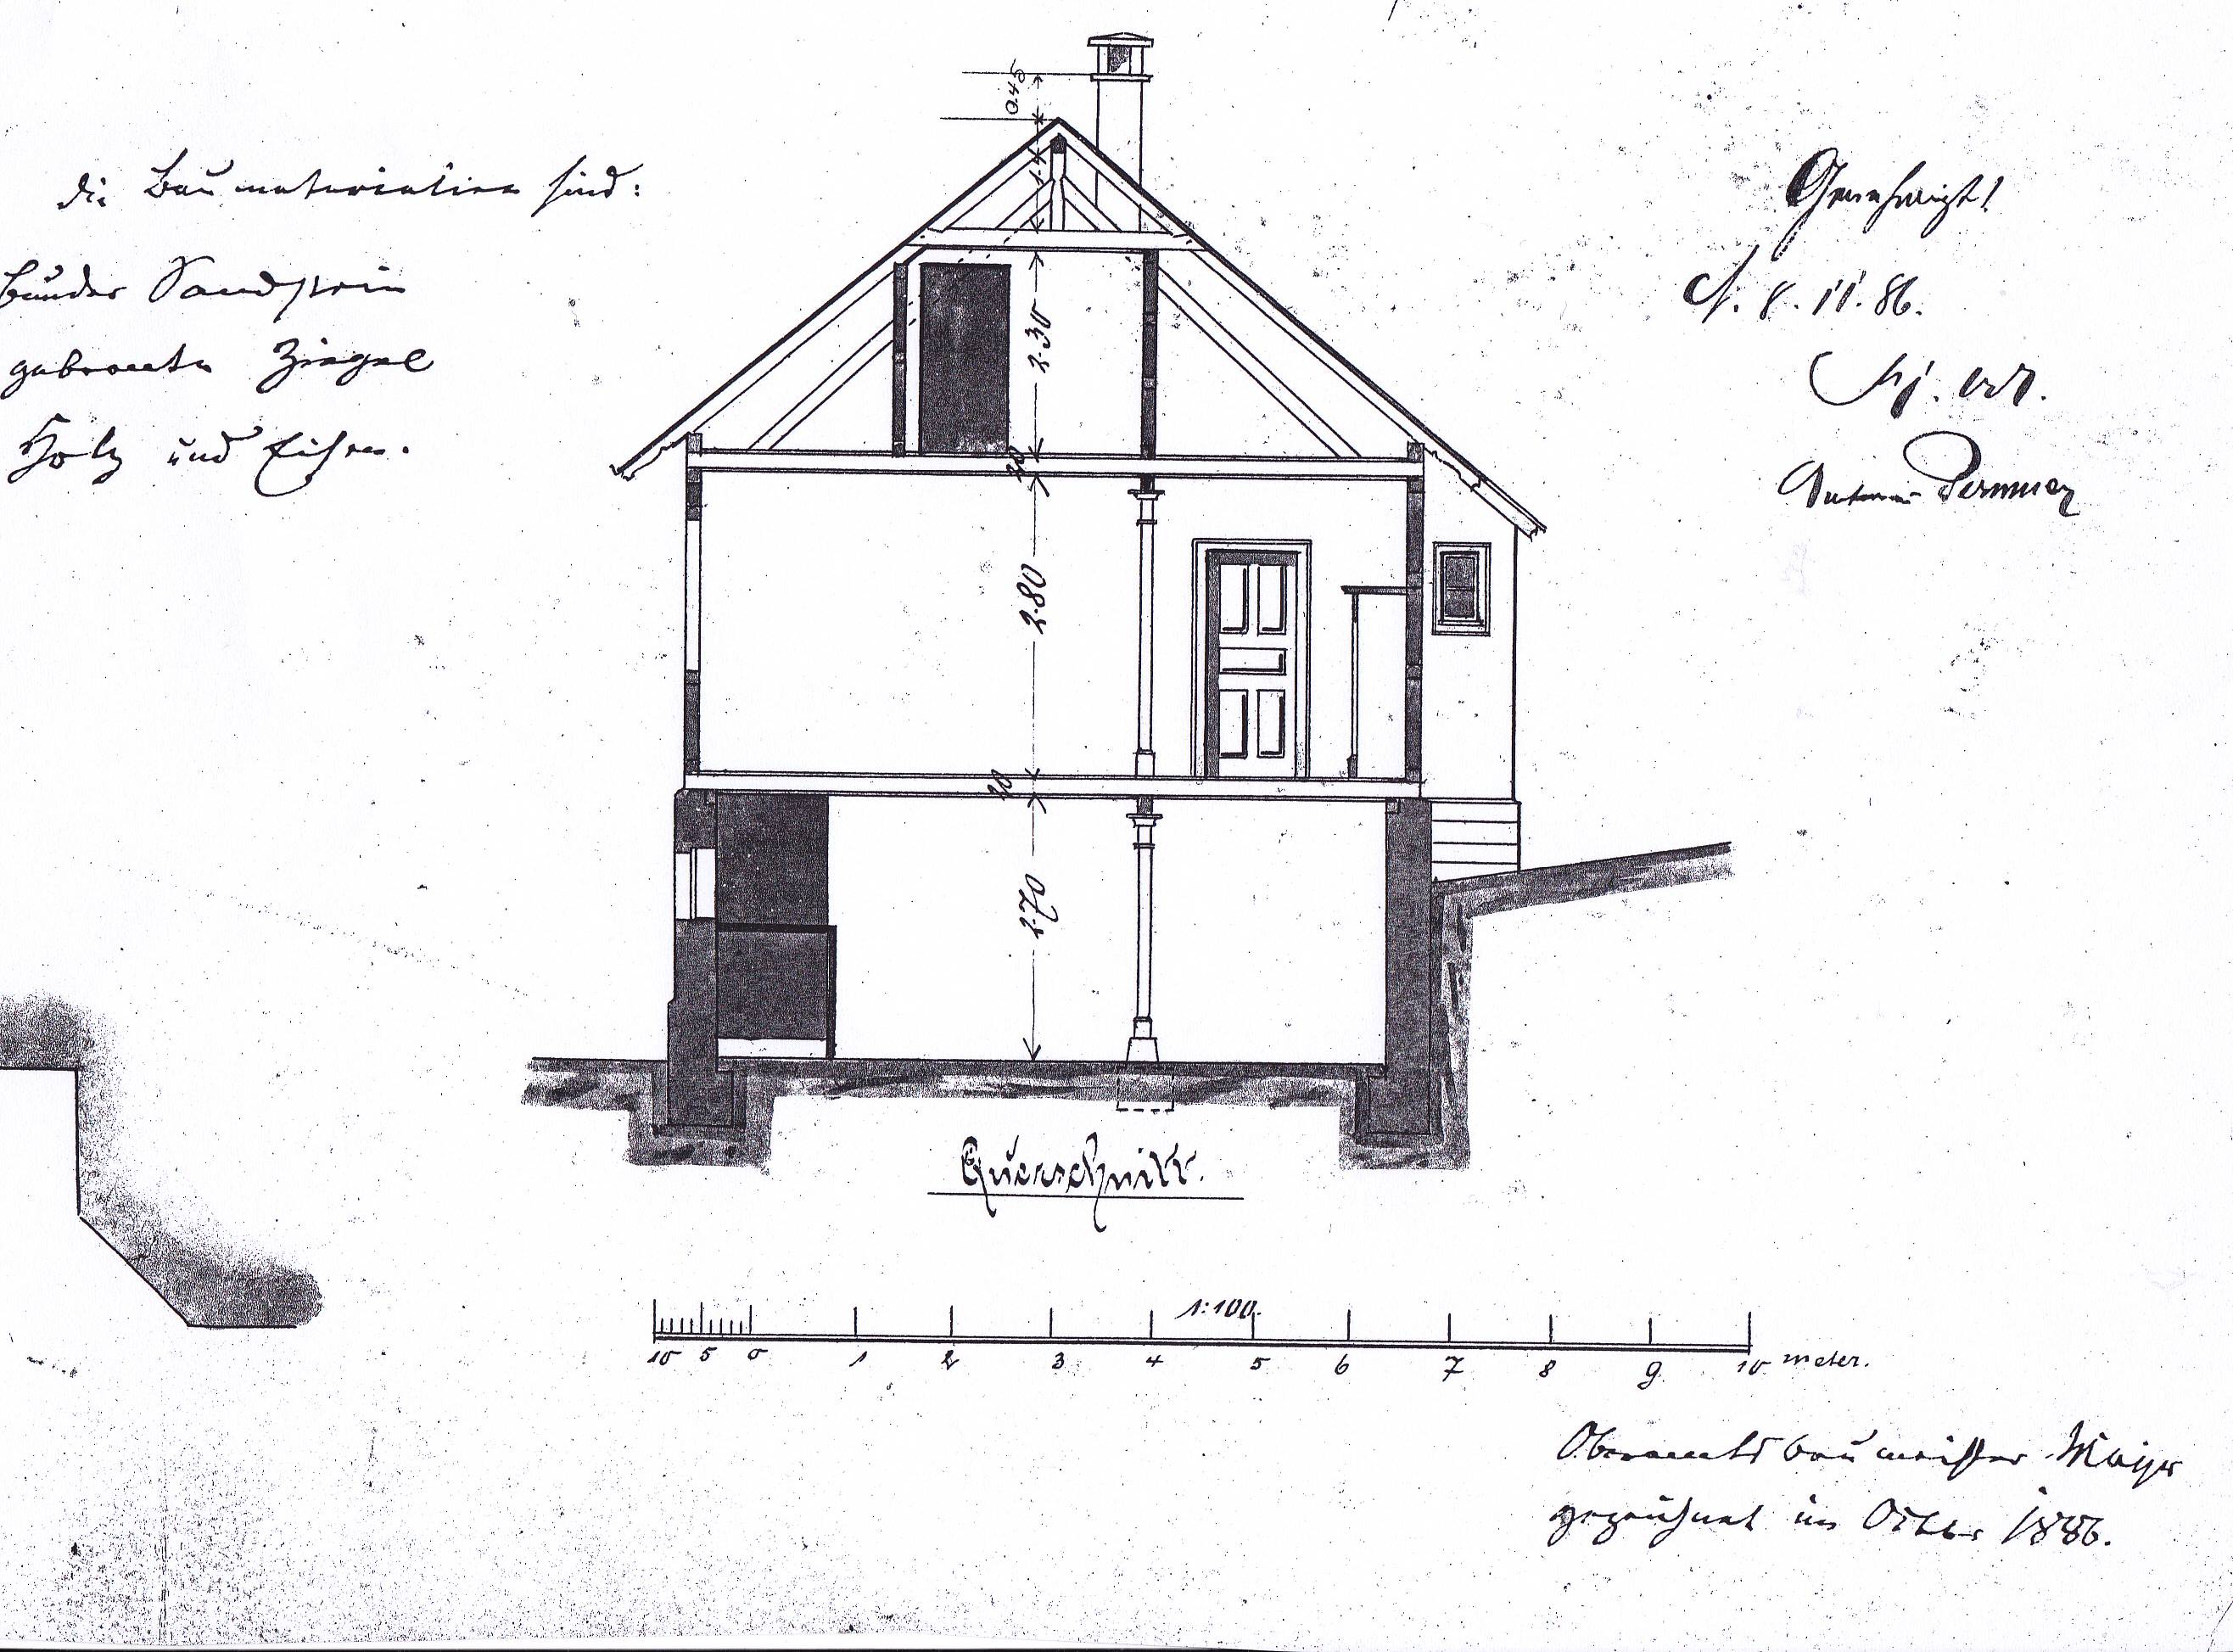 die Baumaterialien sind:
bunder Sandstein
gebrannte Ziegel
Holz und Eisen.
0.45
1.4
2.30
20
2.80
20
2.70
Querschnitt.
1:100.
10 5 0 1 2 3 4 5 6 7 8 9 10 meter.
Genehmigt!
8. 11. 86.
Oberamtsbaumeister Mayer
gezeichnet im Octbr 1886.